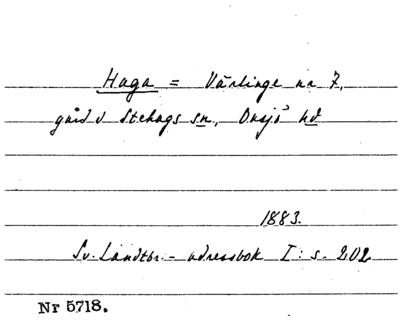 Haga = Värlinge nr 7,
gård i Stehags sn, Onsjö hd
1883.
Sv. Landtbr.-adressbok I: s. 202
Nr 5718.